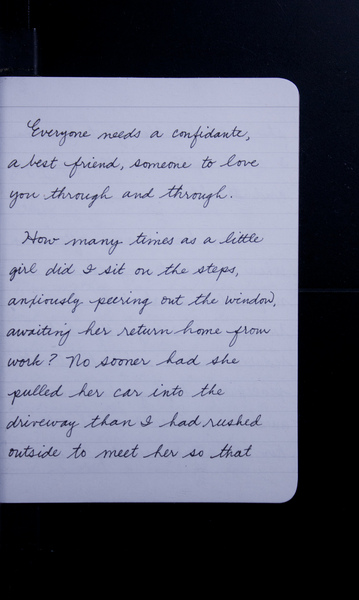 Everyone needs a confidante,
a best friend, someone to love
you through and through.
How many times as a little
girl did I sit on the steps,
anxiously peering out the window,
awaiting her return home from
work? No sooner had she
pulled her car into the
driveway than I had rushed
outside to meet her so that